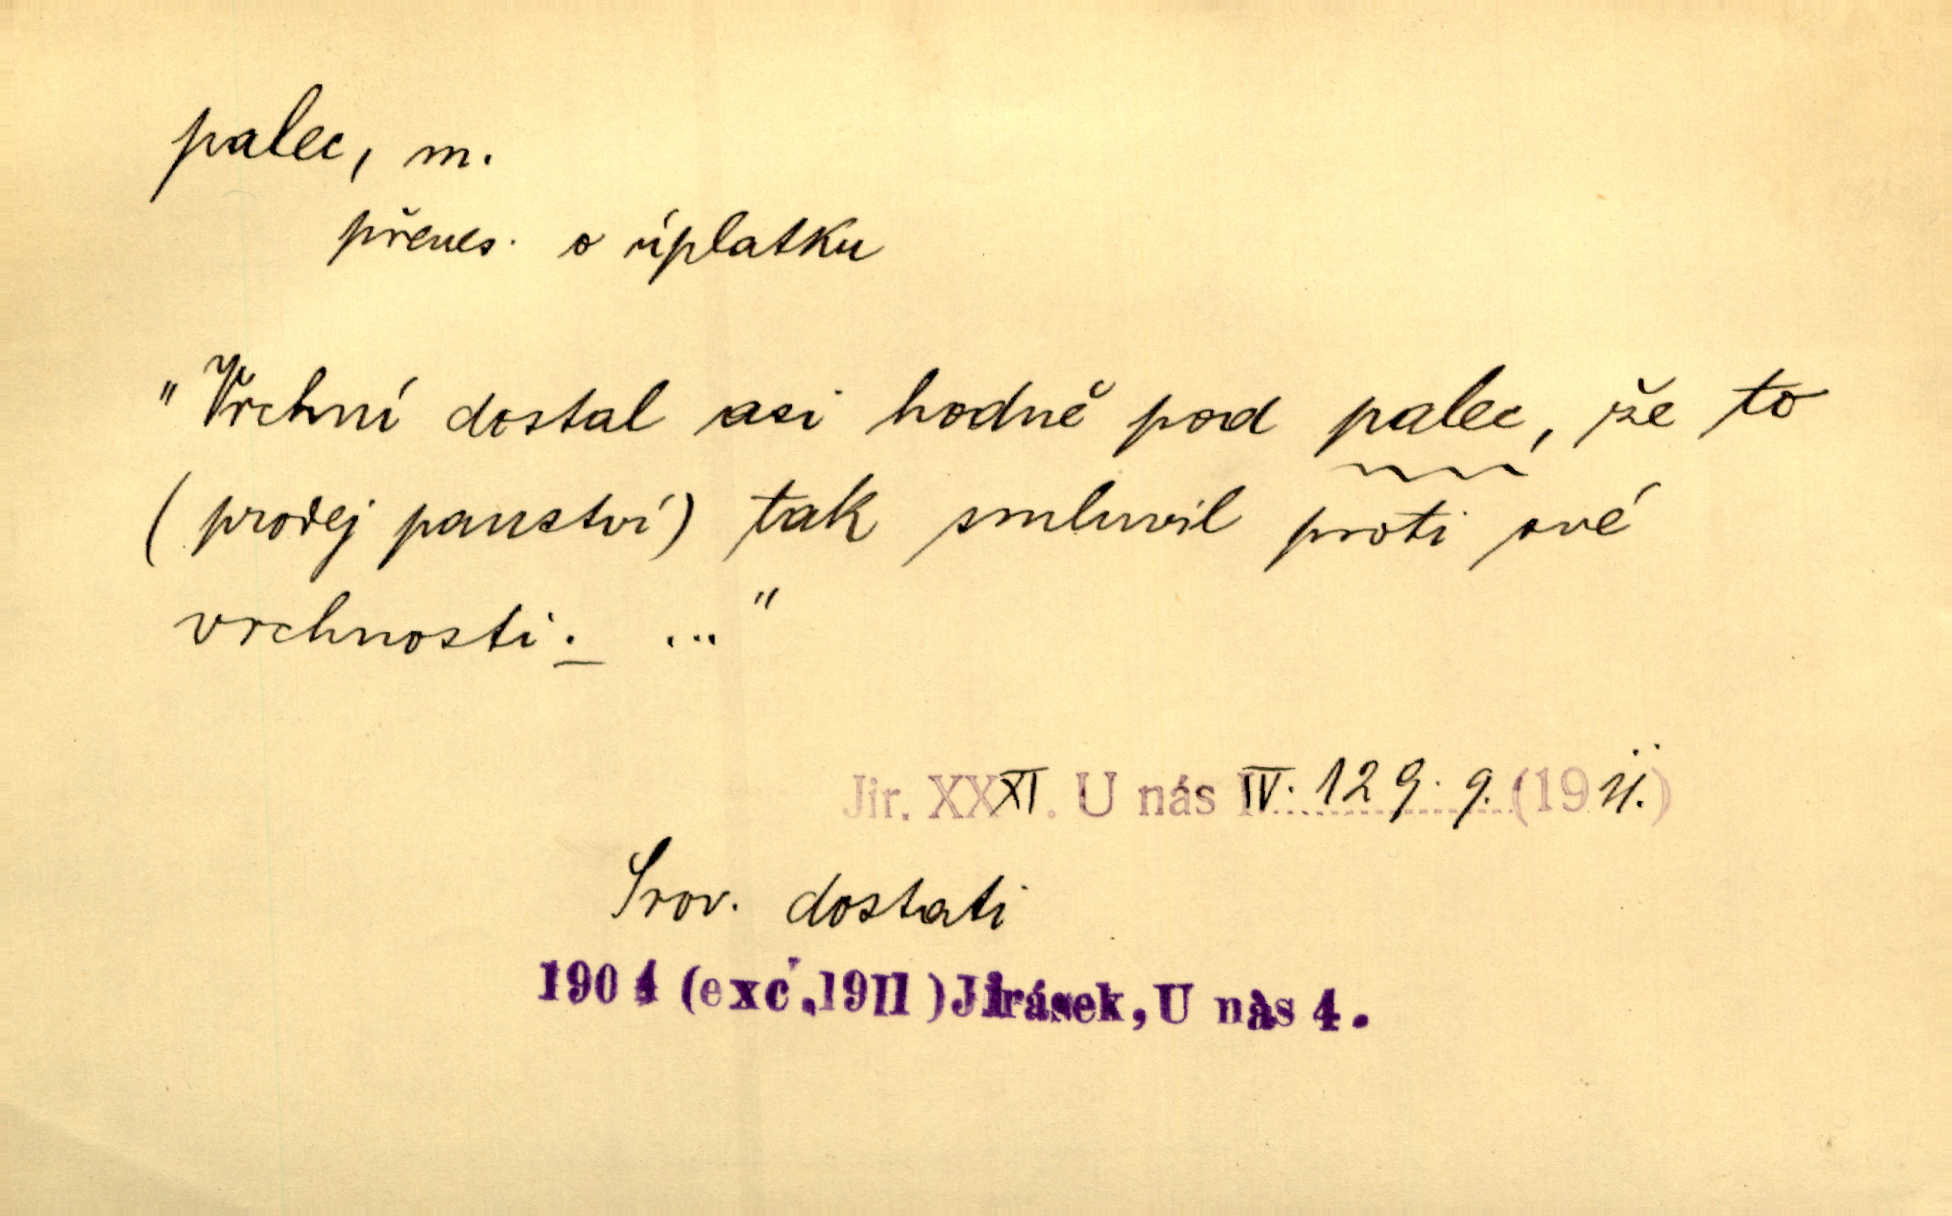 palec, m.
přenes. o úplatku
"Vrchní dostal asi hodně pod palec, že to
(prodej panství) tak smluvil proti své
vrchnosti. ..."
Jir. XXXI. U nás IV. 129. 9. (1911.)
Srov. dostati
1904 (exc. 1911) Jirásek, U nás 4.